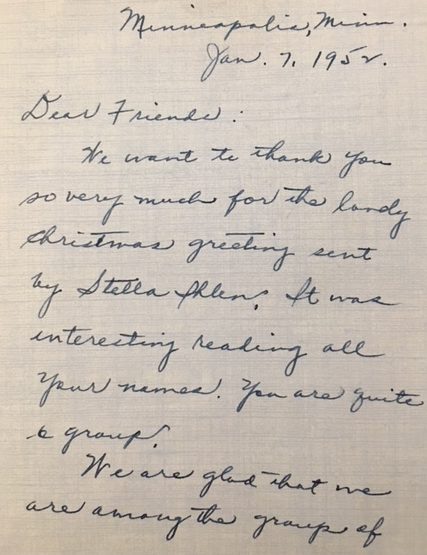 Minneapolis, Minn.
Jan. 7, 1952.
Dear Friends:
We want to thank you
so very much for the
Christmas greeting sent
by Stella Ihlen. It was
interesting reading all
your names. You are quite
a group!
We are glad that we
are among the group of